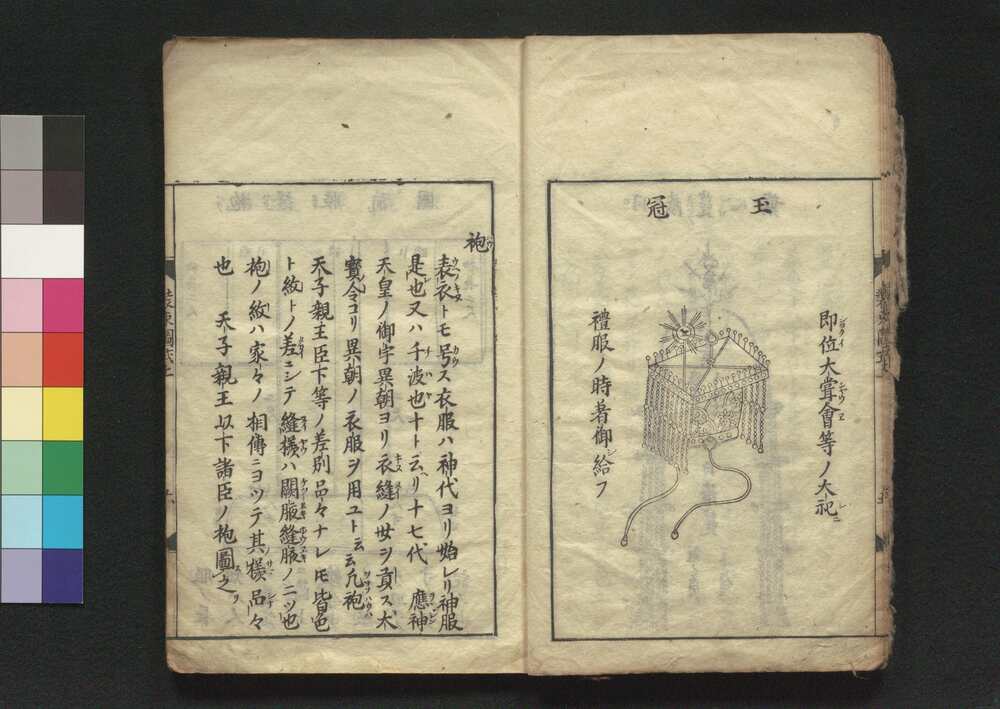 玉冠
即位大嘗會等ノ大祀ニ
禮服ノ時著御シ給フ
袍
表衣トモ号ス衣服ハ神代ヨリ始レリ神服
是也又ハ千波也十ト云ヘリ十七代　應神
天皇ノ御宇異朝ヨリ衣縫ノ女ヲ貢ス大
寳令ヨリ異朝ノ衣服ヲ用ユト云云凡袍
天子親王臣下等ノ差別品々ナレ𪜈皆色
ト紋トノ差ニシテ縫様ハ闕腋縫腋ノ二ツ也
袍ノ紋ハ家々ノ相傳ニヨツテ其様品々
也　天子親王以下諸臣ノ袍圖之